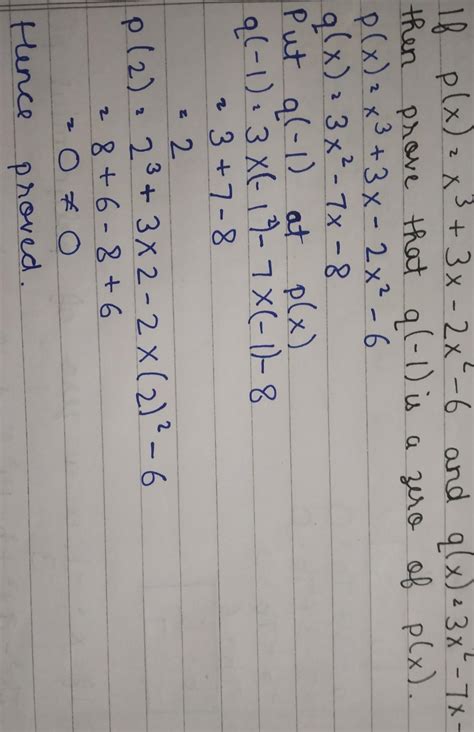 If p(x) = x³ + 3x - 2x² - 6 and q(x) = 3x² - 7x -
then prove that q(-1) is a zero of p(x).
p(x) = x³ + 3x - 2x² - 6
q(x) = 3x² - 7x - 8
Put q(-1) at p(x)
q(-1) = 3x(-1²) - 7x(-1) - 8
= 3 + 7 - 8
= 2
p(2) = 2³ + 3x2 - 2x(2)² - 6
= 8 + 6 - 8 + 6
= 0 ≠ 0
Hence proved.